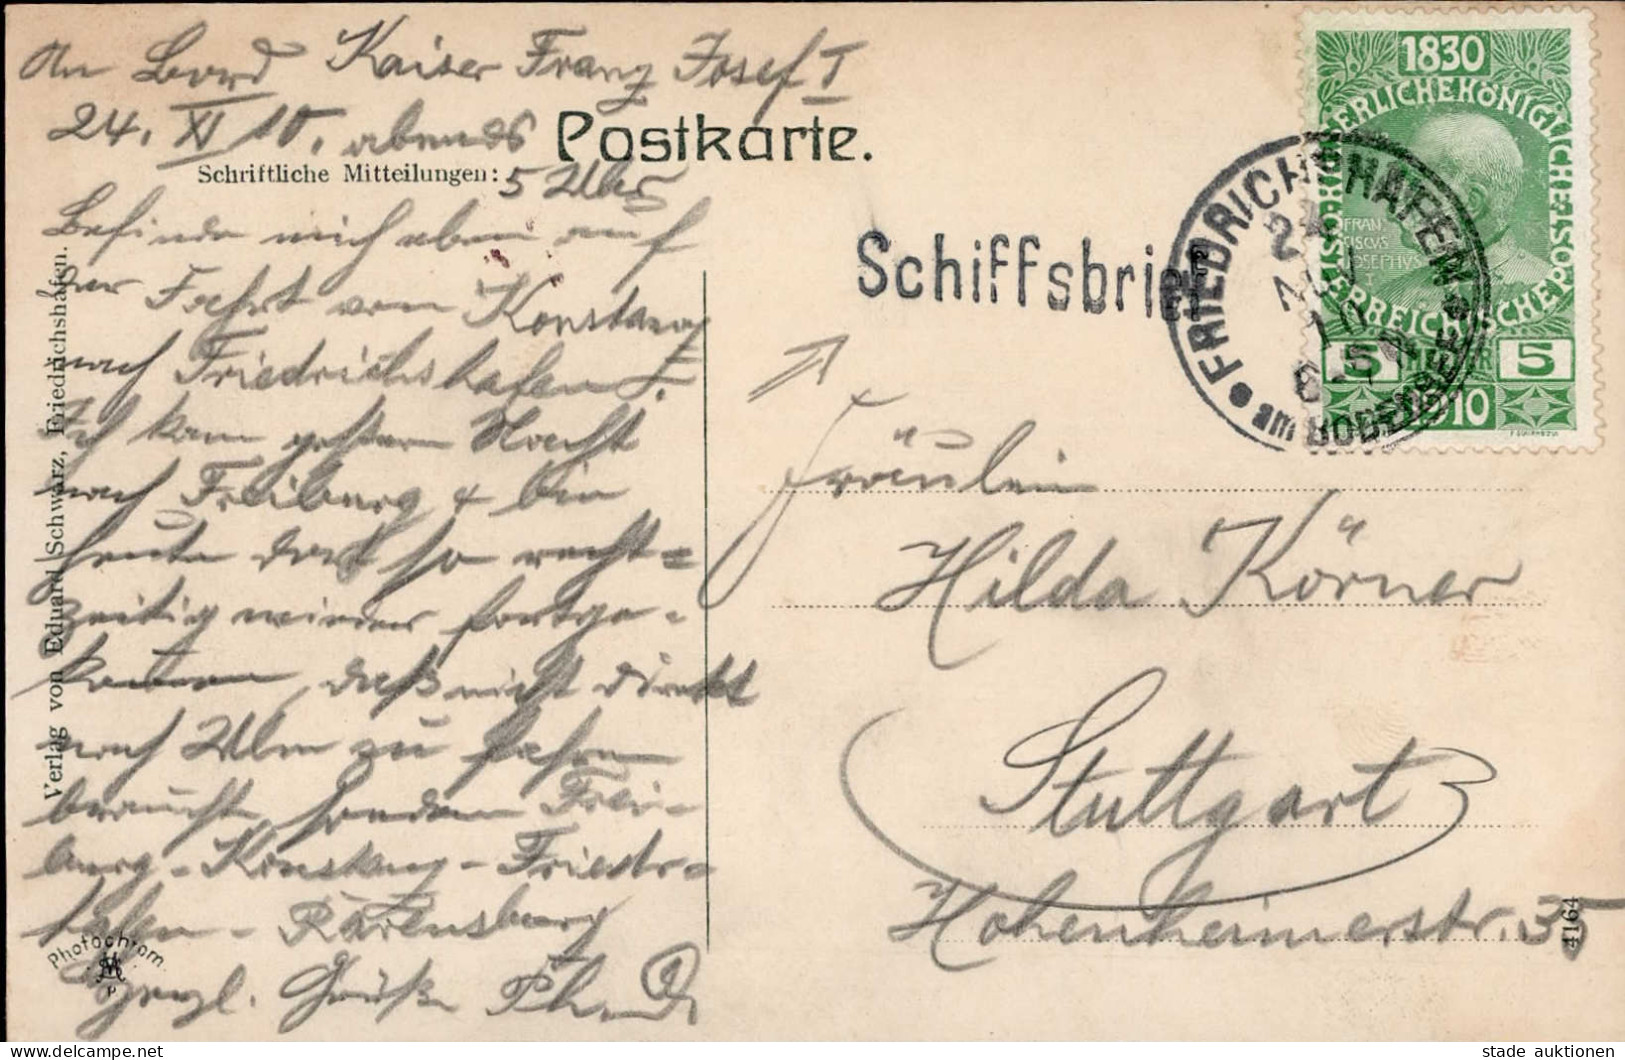 An Bord Kaiser Franz Josef I
24. XI 10. abends
Postkarte.
Schriftliche Mitteilungen:
5 Uhr
Befinde mich eben auf
der Fahrt von Konstanz
nach Friedrichshafen.
Ich kam gestern Nacht
nach Freiburg & bin
heute dort so recht-
zeitig wieder fortge-
kommen, daß nicht direkt
nach Ulm zu fahren
brauchte, sondern Frei-
burg - Konstanz - Friedr-
hafen - Ravensburg
Herzl. Grüße Ph.
Verlag von Eduard Schwarz, Friedrichshafen.
Photochrom.
Schiffsbrief
FRIEDRICHSHAFEN
am BODENSEE
24
10
1830
KAISERLICHE KÖNIGLICHE
ÖSTERREICHISCHE POST
FRAN
CISCVS
JOSEPHVS
I
5 HELLER 5
1910
Fräulein
Hilda Körner
Stuttgart
Hohenheimerstr. 35
4164
stade auktionen